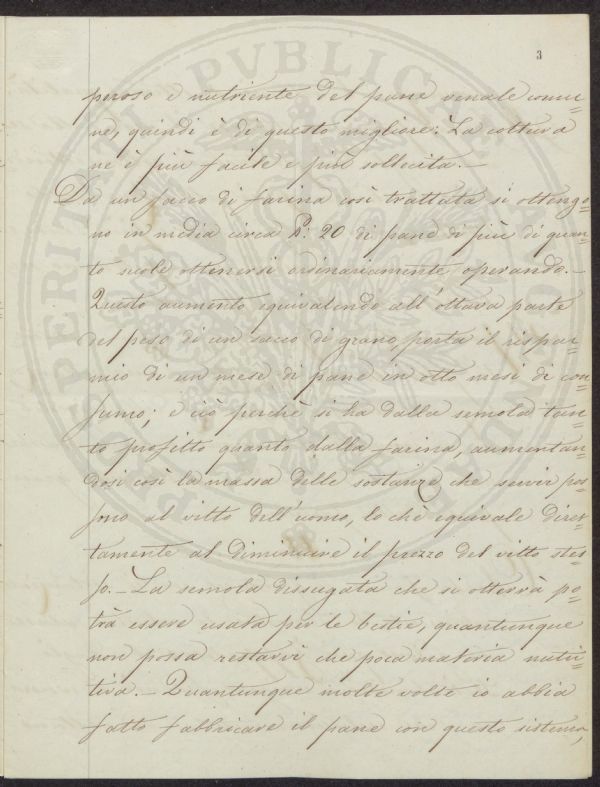 3
poroso e nutriente del pane venale comu=
ne, quindi è di questo migliore. La cottura
ne è più facile e più sollecita.—
Da un sacco di farina così trattata si ottengo=
no in media circa 20 di pane di più di quan=
to suole ottenersi ordinariamente operando.—
Questo aumento equivalendo all'ottava parte
del peso di un sacco di grano porta il rispar=
mio di un mese di pane in otto mesi di con=
sumo; e ciò perchè si ha dalla semola tan=
to profitto quanto dalla farina, aumentan=
dosi così la massa delle sostanze che servir pos=
sono al vitto dell'uomo, lo chè equivale diret=
tamente al diminuire il prezzo del vitto stes=
so.— La semola dissugata che si otterrà po=
trà essere usata per le bestie, quantunque
non possa restarvi che poca materia nutri=
tiva.— Quantunque molte volte io abbia
fatto fabbricare il pane con questo sistema,